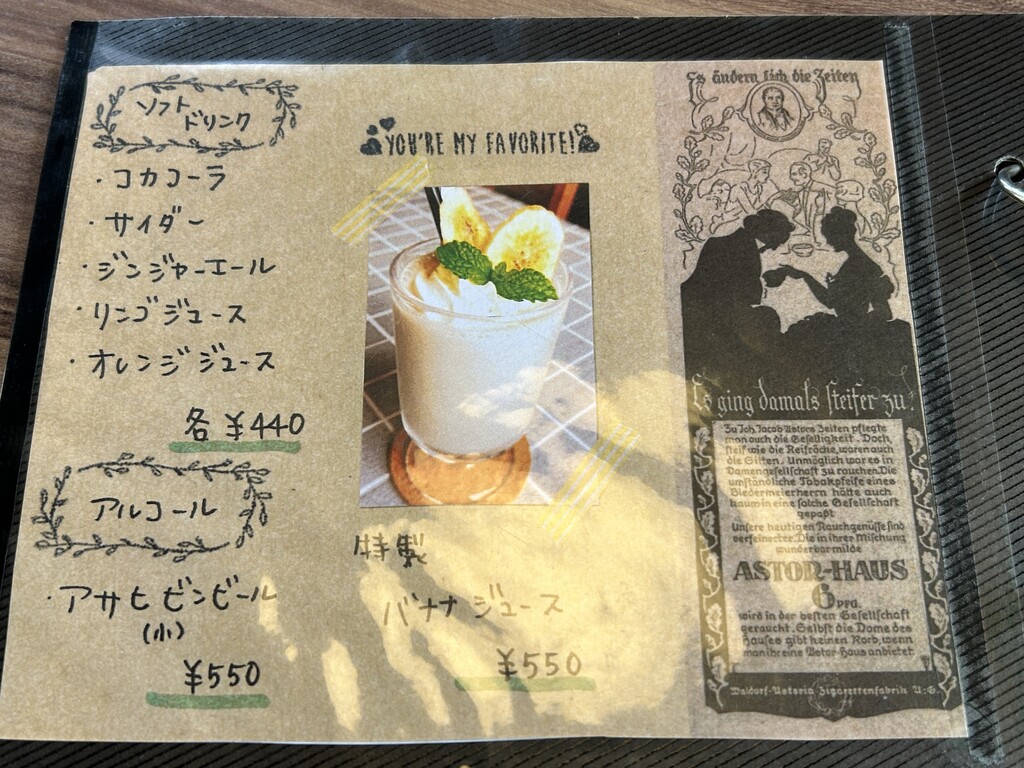 ソフト
ドリンク
・コカコーラ
・サイダー
・ジンジャーエール
・リンゴジュース
・オレンジジュース
各 ¥440
アルコール
・アサヒ ビンビール
(小)
¥550
YOU'RE MY FAVORITE!
特製
バナナジュース
¥550
Es ändern sich die Zeiten
Es ging damals steifer zu!
Zu Joh. Jacob Astors Zeiten pflegte
man auch die Geselligkeit. Doch,
steif wie die Reifröche, waren auch
die Sitten. Unmöglich war es in
Damengesellschaft zu rauchen. Die
umständliche Tabakpfeife eines
Biedermeierherrn hätte auch
kaum in eine solche Gesellschaft
gepaßt
Unsere heutigen Rauchgenüsse sind
verfeinerter. Die in ihrer Mischung
wunderbar milde
ASTOR-HAUS
6 PFG.
wird in der besten Gesellschaft
geraucht. Selbst die Dame des
Hauses gibt keinen Korb, wenn
man ihr eine Astor-Haus anbietet
Waldorf-Astoria Zigarettenfabrik A.-G.